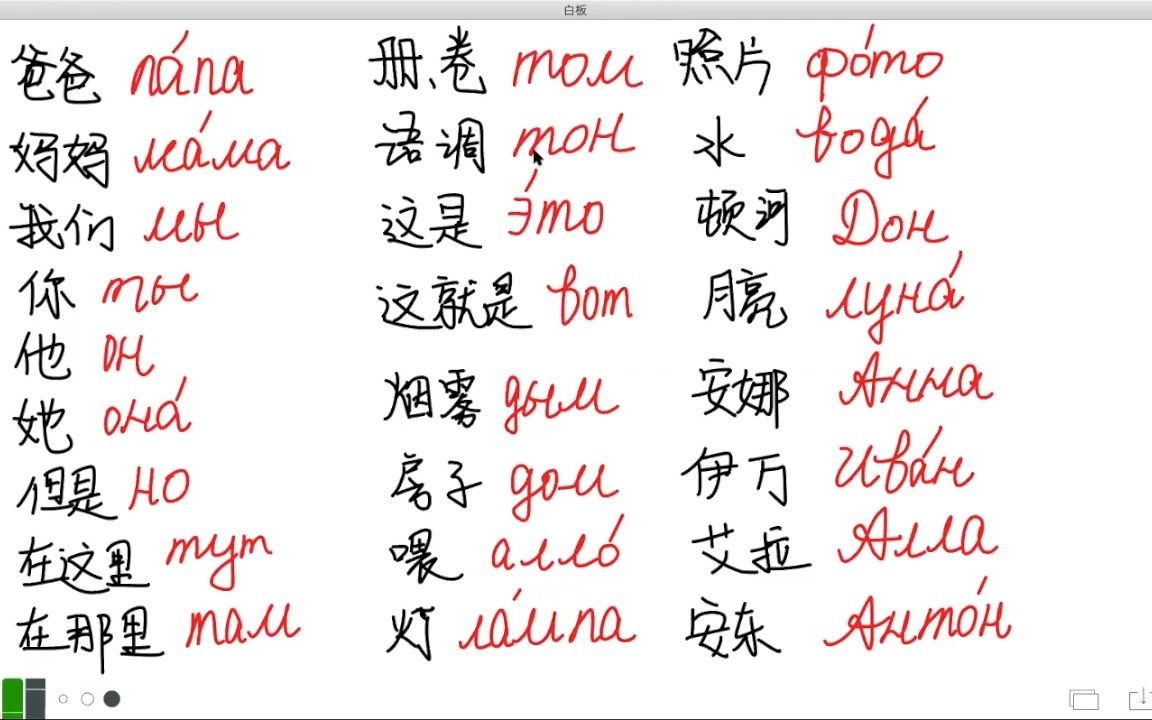 白板
爸爸 па́па
妈妈 ма́ма
我们 мы
你 ты
他 он
她 она́
但是 но
在这里 тут
在那里 там
册、卷 том
语调 тон
这是 э́то
这就是 вот
烟雾 дым
房子 дом
喂 алло́
灯 ла́мпа
照片 фо́то
水 вода́
顿河 Дон
月亮 луна́
安娜 Анна
伊万 Ива́н
艾拉 Алла
安东 Анто́н